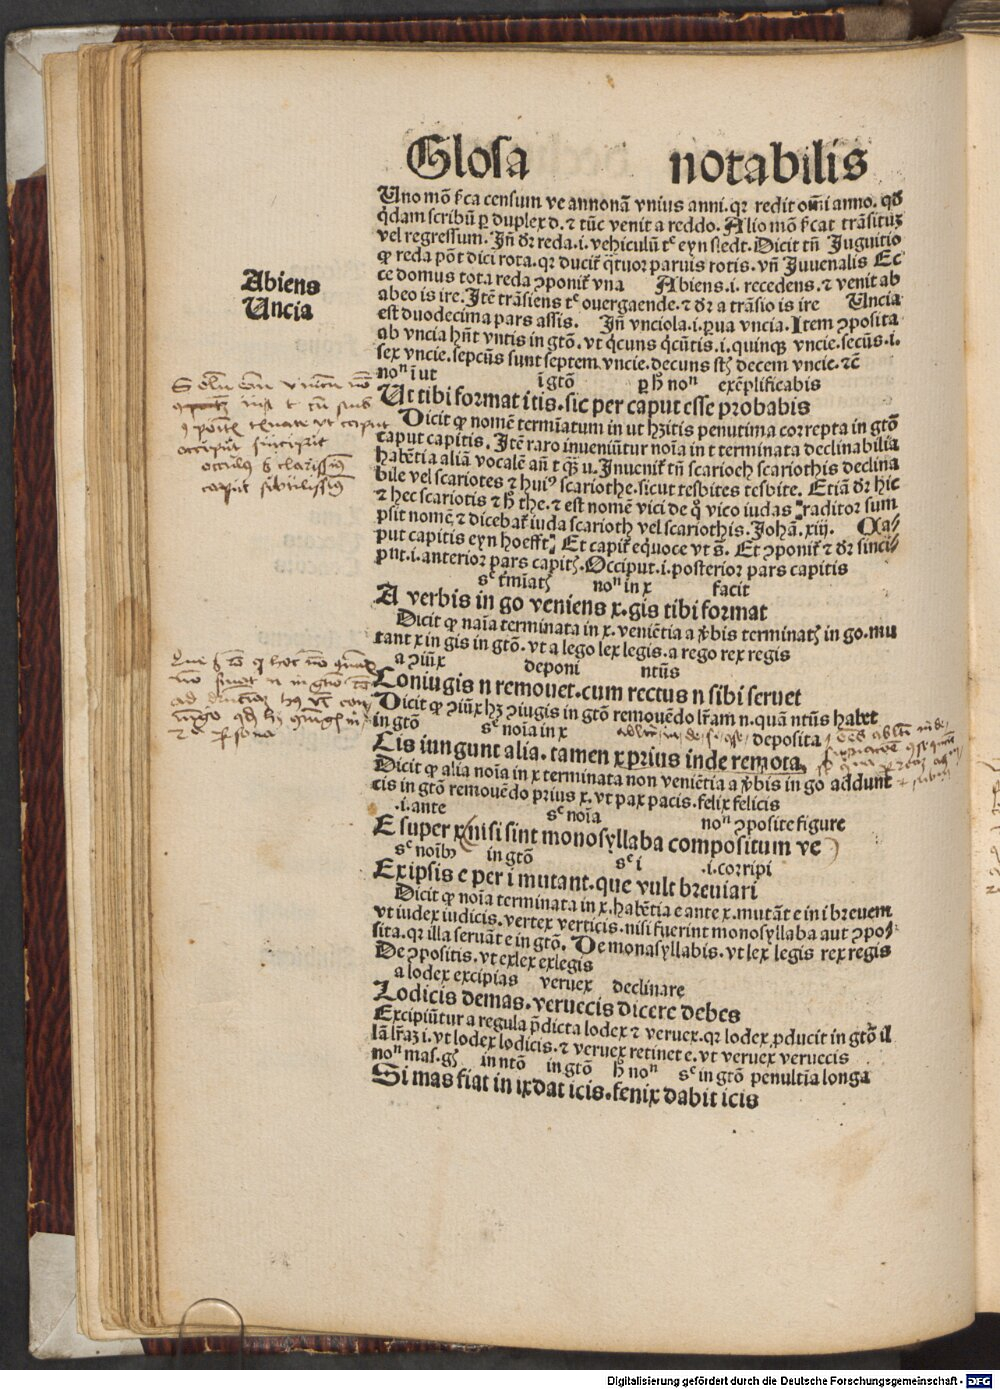 Glosa notabilis
Uno mõ ſ̃ca censum ve annonã vnius anni. qꝛ redit om̃i anno. qđ
q̃dam scribũt ꝑ duplex d. ⁊ tũc venit a reddo. Alio mõ ſ̃cat trãsituꝫ
vel regressum. Jñ d̃r reda .i. vehiculũ tᶜ eyn sledt. Dicit tñ Juguitio
ꝙ reda põt dici rota. qꝛ ducit̃ q̃tuor paruis rotis. vñ Juuenalis Ec
ce domus tota reda ꝯponit̃ vna Abiens .i. recedens. ⁊ venit ab
Abiens
abeo is ire. Jtẽ trãsiens tᶜ ouergaende. ⁊ d̃r a trãsio is ire Uncia
Uncia
est duodecima pars assis. Jñ vnciola .i. ꝑua vncia. Jtem ꝯposita
ab vncia hñt vntis in gtõ. vt q̃cuns q̃cũtis .i. quinqꝫ vncie. secũs .i.
sex vncie. sepcũs sunt septem vncie. decuns stꝫ decem vncie. ⁊c̃
noⁿ ĩ ut ĩ gtõ ꝑ h̃ noⁿ exẽplificabis
Ut tibi format itis. sic per caput esse probabis
Dicit ꝙ nomẽ termĩatum in ut hꝫ itis penultima correpta in gtõ
caput capitis. Jtẽ raro inueniũtur noĩa in t terminata declinabilia
habẽtia aliã vocalẽ añ t q̃ꝫ u. Jnuenit̃ tñ scarioth scariothis declina
bile vel scariotes ⁊ huiꝰ scariothe. sicut tesbites tesbite. Etiã d̃r hic
⁊ hec scariotis ⁊ h̃ the. ⁊ est nomẽ vici de q̊ vico iudas traditor sum
psit nomẽ ⁊ dicebat̃ iuda scarioth vel scariothis. Johã. xiij. Ca⸗
put capitis eyn hoefft. Et capit̃ eq̃uoce vt s̃. Et ꝯponit̃ ⁊ d̃r sinci⸗
put .i. anterior pars capitꝫ. Occiput .i. posterior pars capitis
sᶜ t̃mĩatꝫ noⁿ in x facit
A verbis in go veniens x. gis tibi format
Dicit ꝙ noĩa terminata in x. veniẽtia a v̾bis terminatꝫ in go. mu
tant x in gis in gtõ. vt a lego lex legis. a rego rex regis
a ꝯiũx deponi ntũs
Coniugis n remouet. cum rectus n sibi seruet
Dicit ꝙ ꝯiũx hꝫ ꝯiugis in gtõ remouẽdo lr̃am n. quã ntũs habet
in gtõ sᶜ noĩa in x deposita
Cis iungunt alia. tamen x prius inde remota
Dicit ꝙ alia noĩa in x terminata non veniẽtia a v̾bis in go addunt
cis in gtõ remouẽdo prius x. vt pax pacis. felix felicis
.i. ante sᶜ noĩa noⁿ ꝯposite figure
E super x nisi sint monosyllaba compositum ve
sᶜ noĩbꝫ in gtõ sᶜ i .i. corripi
Ex ipsis e per i mutant. que vult breuiari
Dicit ꝙ noĩa terminata in x. habẽtia e ante x. mutãt e in i breuem
vt iudex iudicis. vertex verticis. nisi fuerint monosyllaba aut ꝯpo⸗
sita. qꝛ illa seruãt e in gtõ. De monasyllabis. vt lex legis rex regis
De ꝯpositis. vt exlex exlegis
a lodex excipias veruex declinare
Lodicis demas. veruecis dicere debes
Excipiũtur a regula p̃dicta lodex ⁊ veruex. qꝛ lodex ꝓducit in gtõ il
lã lr̃aꝫ i. vt lodex lodicis. ⁊ veruex retinet e. vt veruex veruecis
noⁿ mas. gꝫ in ntõ in gtõ h̃ noⁿ sᶜ in gtõ penultĩa longa
Si mas fiat in ix dat icis. fenix dabit icis
Digitalisierung gefördert durch die Deutsche Forschungsgemeinschaft - DFG